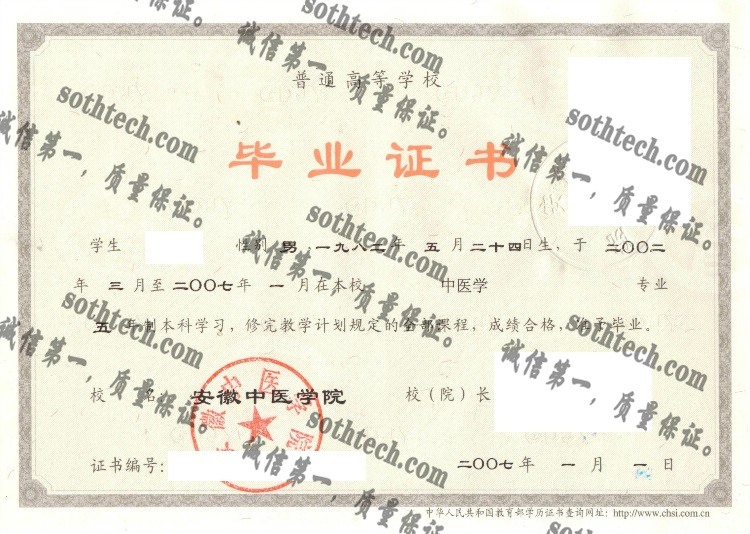 普通高等学校
毕业证书
学生 性别 男，一九八二年 五月二十四日生，于 二〇〇二
年 三月至二〇〇七年 一月在本校 中医学 专业
五 年制本科学习，修完教学计划规定的全部课程，成绩合格，准予毕业。
校 名： 安徽中医学院 校（院）长
安徽中医学院
证书编号： 二〇〇七年 一月 一日
中华人民共和国教育部学历证书查询网址：http://www.chsi.com.cn
sothtech.com
诚信第一，质量保证。
sothtech.com
诚信第一，质量保证。
sothtech.com
诚信第一，质量保证。
sothtech.com
诚信第一，质量保证。
sothtech.com
诚信第一，质量保证。
sothtech.com
诚信第一，质量保证。
sothtech.com
诚信第一，质量保证。
sothtech.com